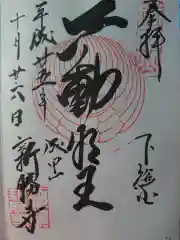 奉拝
下総国
不動明王
平成廿五年
十月廿六日
成田山
新勝寺